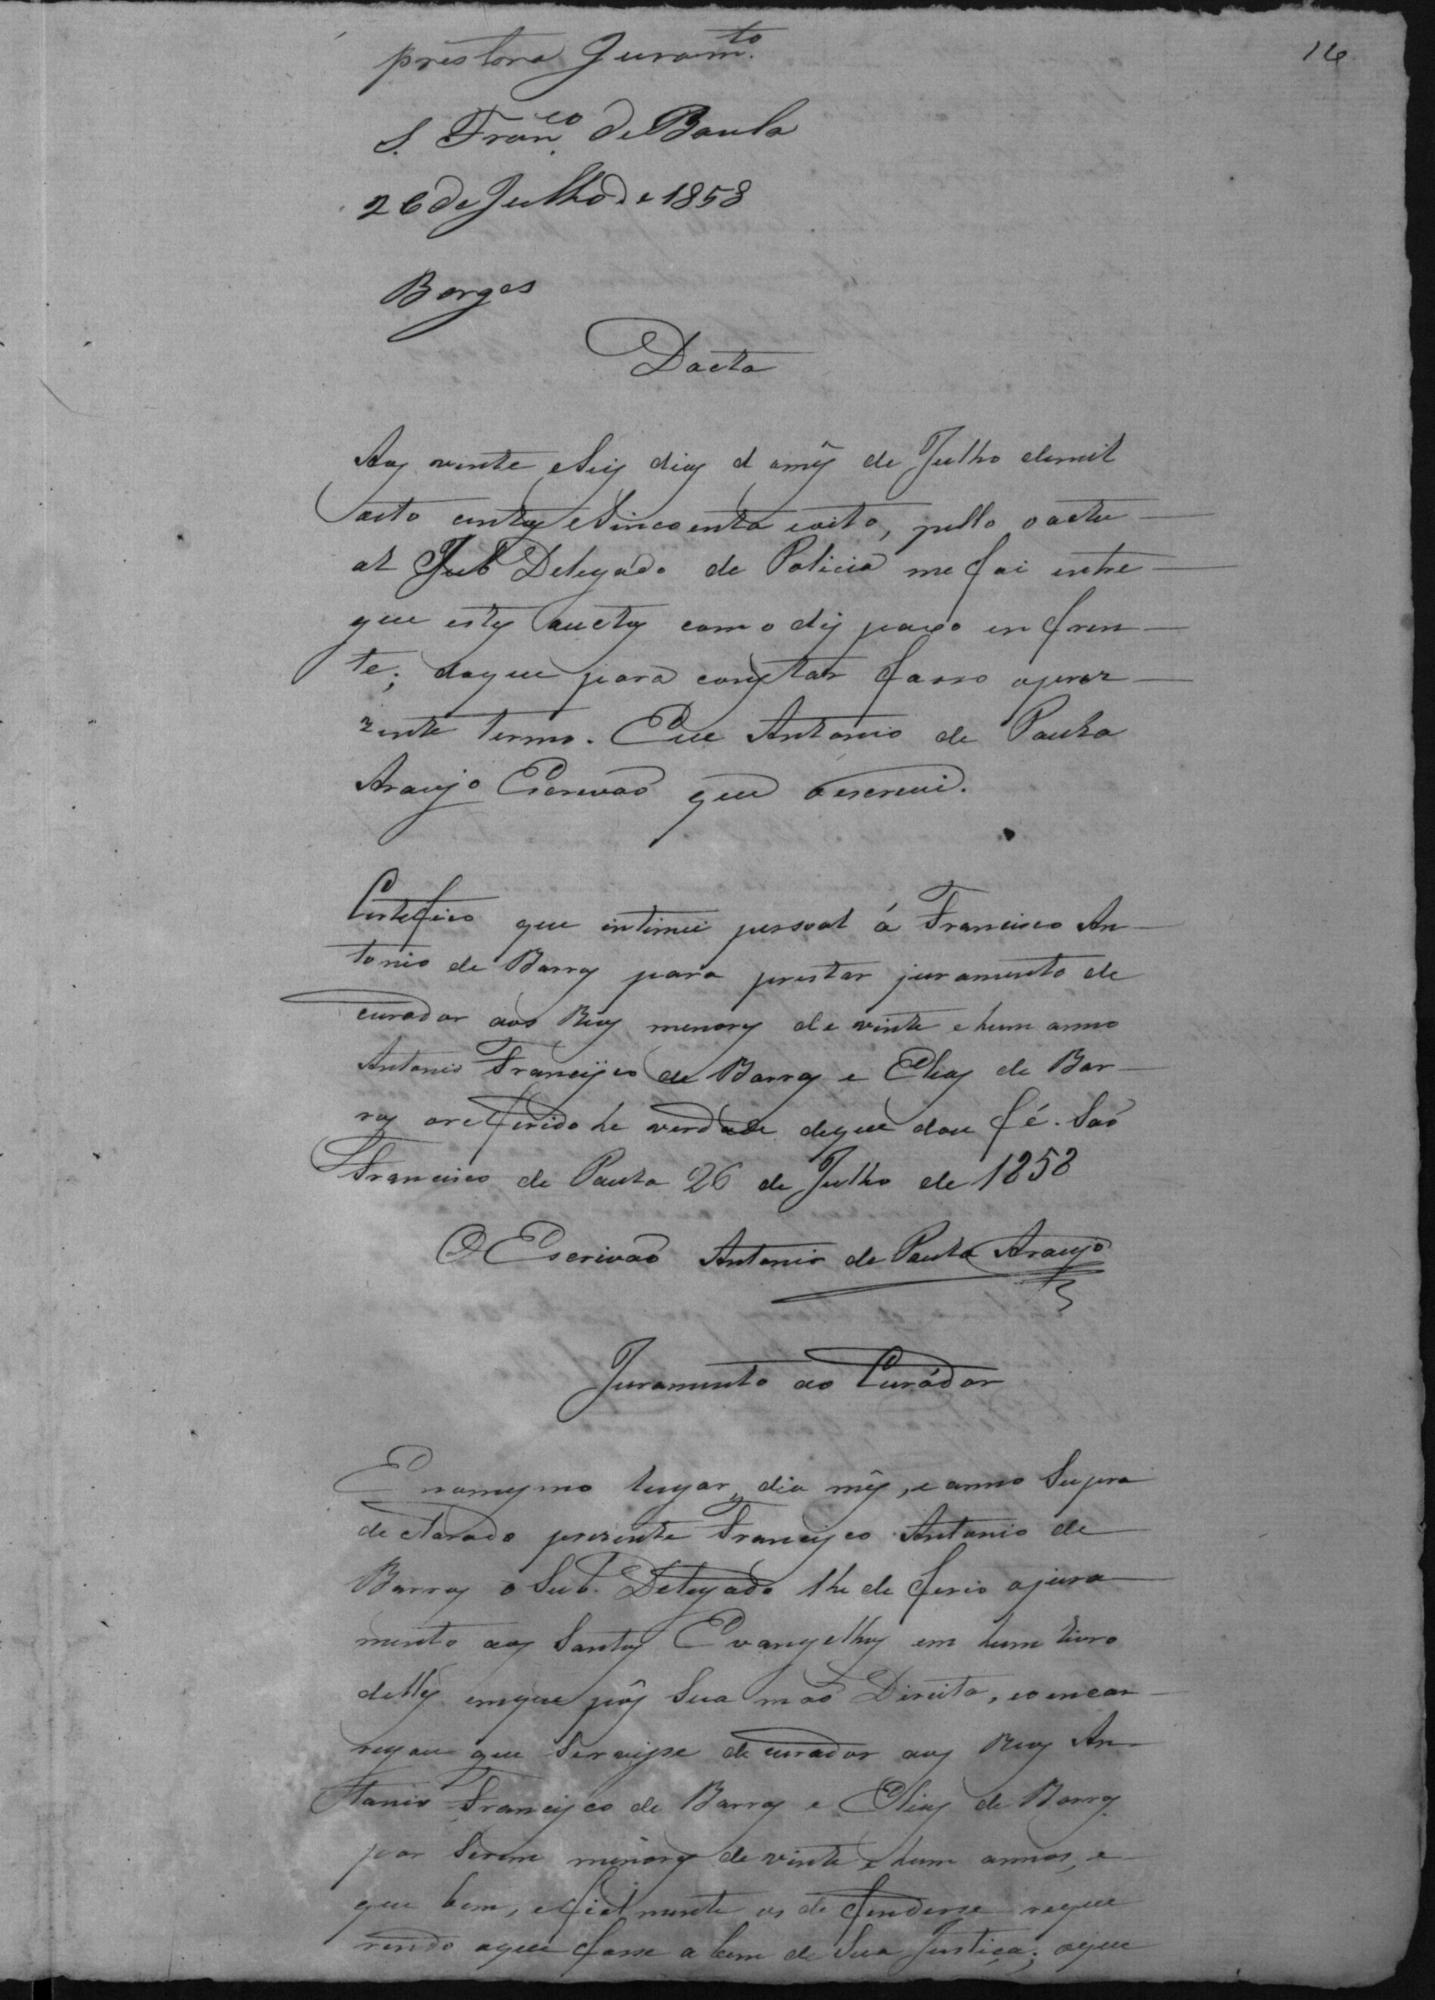 16
prestara Juram.to
S. Fran.co de Paula
26 de Julho de 1858
Borges
Dacta
Aos vinte e seis dias do mês de Julho de mil
oito centos e sincoenta e oito, pello o actu-
al Sub Delegado de Policia me foi entre-
gue estes auctos com o dis paxo en fren-
te; do que para constar fasso o prez-
zente termo. Eu Antonio de Paula
Araujo Escrivaõ que o escrevi.
Certefico que intimei pessoal á Francisco An-
tonio de Barros para prestar juramento de
curador aos Reos menores de vinte e hum anno
Antonio Francisco de Barros e Elias de Bar-
ros o referido he verdade de que dou fé. Saõ
Francisco de Paula 26 de Julho de 1858
O Escrivaõ Antonio de Paula Araujo
Juramento ao Curádor
E no mesmo lugar, dia mês, e anno Supra
declarado prezente Francisco Antonio de
Barros o Sub. Delegado lhe deferio o jura-
mento aos Santos Evangelhos em hum livro
delles em que pôs Sua maõ Direita, e o encar-
regou que Servisse de curador aos Reos An-
tonio Francisco de Barros e Elias de Barros
por Serem menores de vinte e hum annos, e
que bem, e fielmente os defendesse reque
rendo o que fosse a bem de Sua Justiça; o que